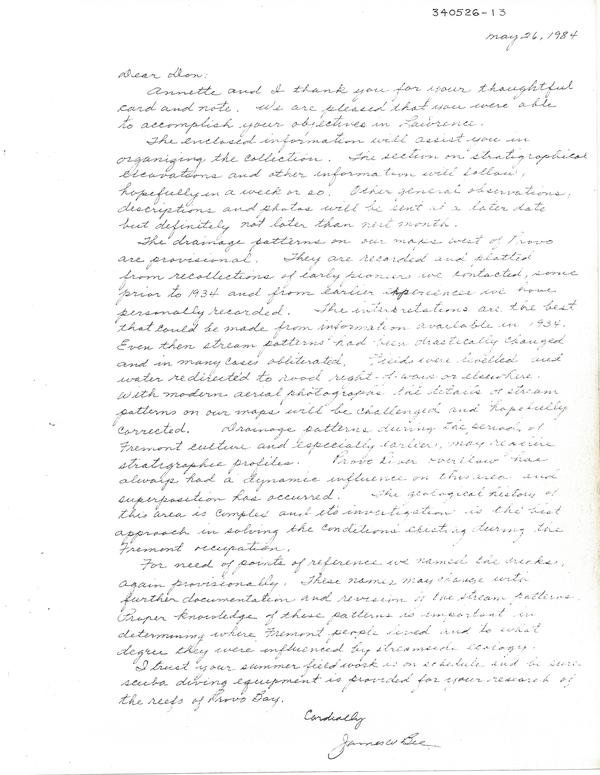 340526-13
May 26, 1984
Dear Don:
Annette and I thank you for your thoughtful
card and note. We are pleased that you were able
to accomplish your objectives in Lawrence.
The enclosed information will assist you in
organizing the collection. The section on stratigraphical
excavations and other information will follow,
hopefully in a week or so. Other general observations,
descriptions and photos will be sent at a later date
but definitely not later than next month.
The drainage patterns on our maps west of Provo
are provisional. They are recorded and plotted
from recollections of early pioneers we contacted, some
prior to 1934 and from earlier experiences we have
personally recorded. The interpretations are the best
that could be made from information available in 1934.
Even then stream patterns had been drastically changed
and in many cases obliterated. Fields were levelled and
water redirected to road right-of-ways or elsewhere.
With modern aerial photographs the details of stream
patterns on our maps will be challenged and hopefully
corrected. Drainage patterns during the period of
Fremont culture and especially earlier, may require
stratigraphic profiles. Provo River "overflow" has
always had a dynamic influence on this area and
superposition has occurred. The geological history of
this area is complex and its investigation is the best
approach in solving the conditions existing during the
Fremont occupation.
For need of points of reference we named the creeks,
again provisionally. These names may change with
further documentation and revision of the stream patterns.
Proper knowledge of these patterns is important in
determining where Fremont people lived and to what
degree they were influenced by streamside ecology.
I trust your summer field work is on schedule and be sure
scuba diving equipment is provided for your research of
the reefs of Provo Bay.
Cordially
James W Bee